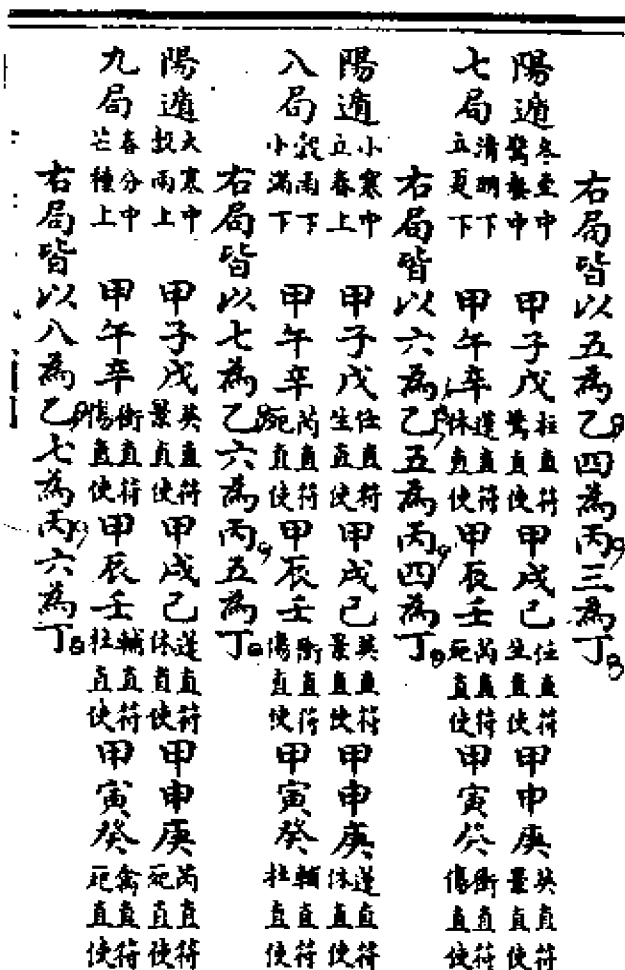 右局皆以五為乙四為丙三為丁
陽遁冬至中驚蟄中 甲子戊柱直符驚直使甲戌己任直符生直使甲申庚英直符景直使
七局清明下立夏下 甲午辛蓬直符休直使甲辰壬芮直符死直使甲寅癸衝直符傷直使
右局皆以六為乙五為丙四為丁
陽遁小寒中立春上 甲子戊任直符生直使甲戌己英直符景直使甲申庚蓬直符休直使
八局穀雨下小滿下 甲午辛芮直符死直使甲辰壬衝直符傷直使甲寅癸輔直符柱直使
右局皆以七為乙六為丙五為丁
陽遁大寒中穀雨上 甲子戊英直符景直使甲戌己蓬直符休直使甲申庚芮直符死直使
九局春分中芒種上 甲午辛衝直符傷直使甲辰壬輔直符柱直使甲寅癸禽直符死直使
右局皆以八為乙七為丙六為丁